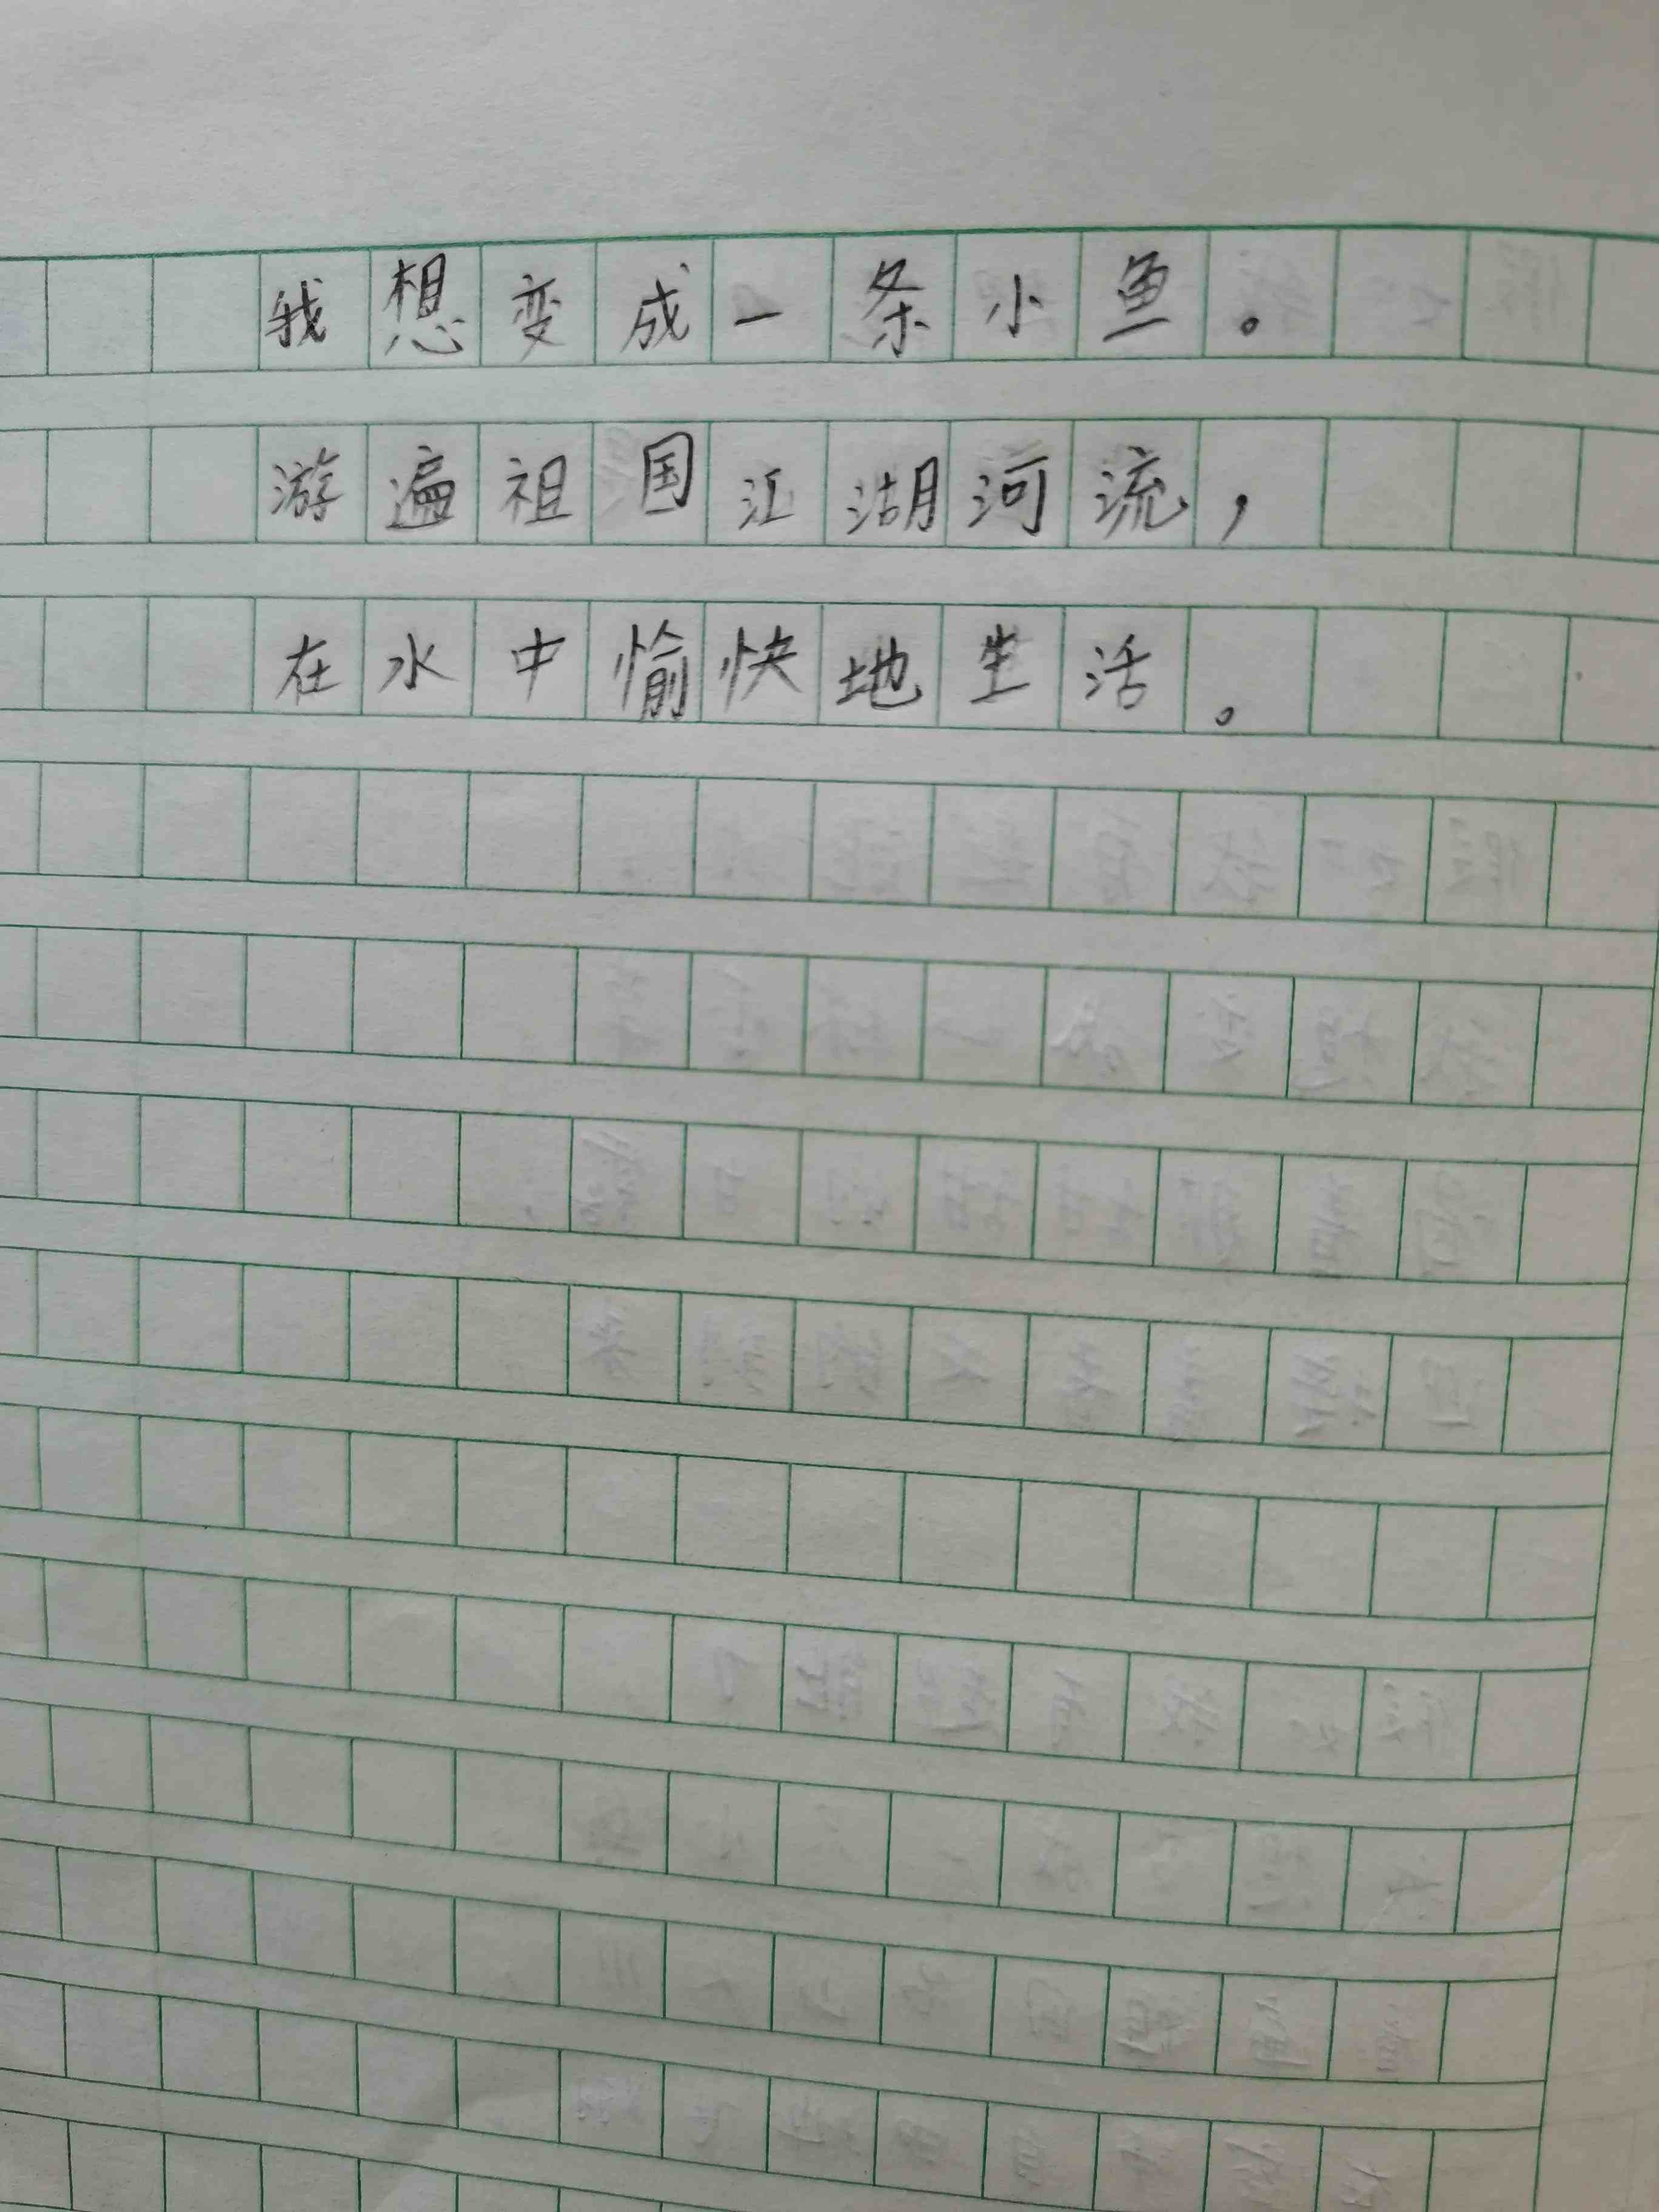 我想变成一条小鱼。
游遍祖国江湖河流，
在水中愉快地生活。